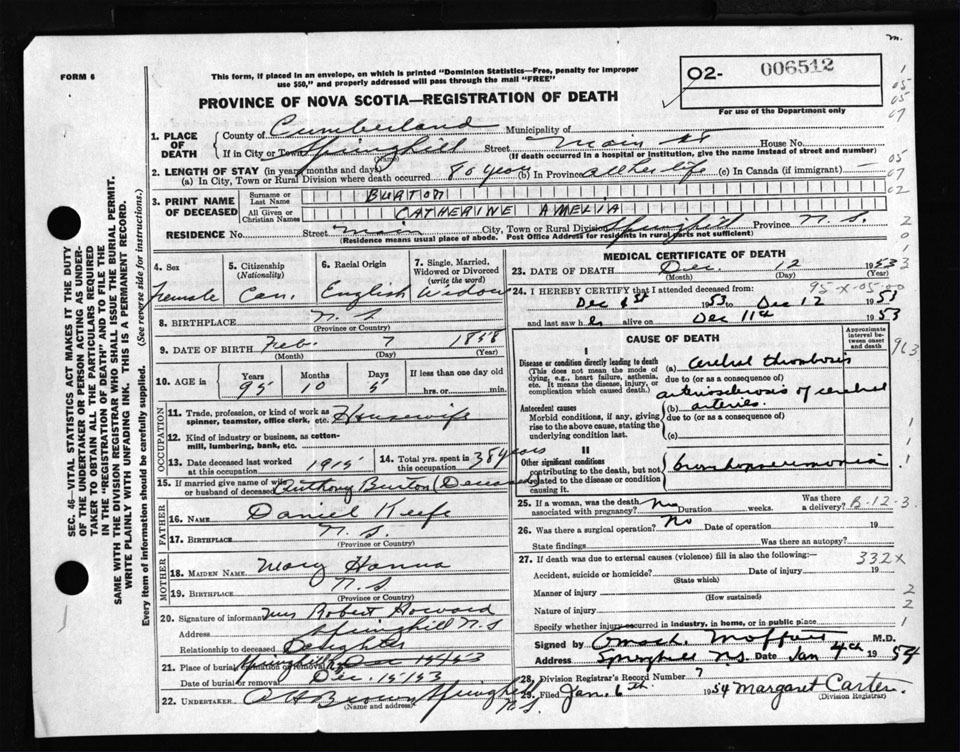 m.
FORM 6
This form, if placed in an envelope, on which is printed "Dominion Statistics—Free, penalty for improper
use $50," and properly addressed will pass through the mail "FREE"
O2- 006512
For use of the Department only
PROVINCE OF NOVA SCOTIA—REGISTRATION OF DEATH
1. PLACE OF DEATH
County of Cumberland Municipality of
If in City or Town Springhill Street Main St House No.
(Name) (If death occurred in a hospital or institution, give the name instead of street and number)
2. LENGTH OF STAY (in years, months and days)
(a) In City, Town or Rural Division where death occurred 80 years (b) In Province all her life (c) In Canada (if immigrant)
3. PRINT NAME OF DECEASED
Surname or Last Name BURTON
All Given or Christian Names CATHERINE AMELIA
RESIDENCE No. Street Main City, Town or Rural Division Springhill Province N.S.
(Residence means usual place of abode. Post Office Address for residents in rural parts not sufficient)
4. Sex Female
5. Citizenship (Nationality) Can.
6. Racial Origin English
7. Single, Married, Widowed or Divorced (write the word) Widow
8. BIRTHPLACE N.S.
(Province or Country)
9. DATE OF BIRTH Feb. 7 1858
(Month) (Day) (Year)
10. AGE in Years Months Days If less than one day old
95 10 5 hrs. or min.
OCCUPATION
11. Trade, profession, or kind of work as spinner, teamster, office clerk, etc. Housewife
12. Kind of industry or business, as cotton-mill, lumbering, bank, etc.
13. Date deceased last worked at this occupation 1915
14. Total yrs. spent in this occupation 38 years
15. If married give name of wife or husband of deceased Anthony Burton (Deceased)
FATHER
16. NAME Daniel Keefe
17. BIRTHPLACE N.S.
(Province or Country)
MOTHER
18. MAIDEN NAME Mary Hanna
19. BIRTHPLACE N.S
(Province or Country)
20. Signature of informant Mrs Robert Howard
Address Springhill N.S
Relationship to deceased Daughter
21. Place of burial, cremation or removal Springhill
Date of burial or removal Dec. 15/53
22. UNDERTAKER A H Brown Springhill N.S.
(Name and address)
MEDICAL CERTIFICATE OF DEATH
23. DATE OF DEATH Dec. 12 1953
(Month) (Day) (Year)
24. I HEREBY CERTIFY that I attended deceased from:
95-X-05-00
Dec 1st 1953 to Dec 12 1953
and last saw her alive on Dec 11th 1953
CAUSE OF DEATH
Approximate interval between onset and death
I
Disease or condition directly leading to death
(This does not mean the mode of dying, e.g., heart failure, asthenia, etc. It means the disease, injury, or complication which caused death.)
(a) cerebral thrombosis
due to (or as a consequence of)
arteriosclerosis of cerebral
(b) arteries.
due to (or as a consequence of)
(c)
Antecedent causes
Morbid conditions, if any, giving rise to the above cause, stating the underlying condition last.
II
Other significant conditions
contributing to the death, but not related to the disease or condition causing it.
bronchopneumonia
25. If a woman, was the death associated with pregnancy? No Duration weeks. Was there a delivery? B-12-3
26. Was there a surgical operation? No Date of operation 19
State findings Was there an autopsy?
27. If death was due to external causes (violence) fill in also the following:—
332x
Accident, suicide or homicide? Date of injury 19
(State which)
Manner of injury
(How sustained)
Nature of injury
Specify whether injury occurred in industry, in home, or in public place
Signed by Moffatt M.D.
Address Springhill N.S. Date Jan 4th 1954
28. Division Registrar's Record Number 7
29. Filed Jan. 6th. 1954 Margaret Carter.
(Division Registrar)
SEC. 46—VITAL STATISTICS ACT MAKES IT THE DUTY
OF THE UNDERTAKER OR PERSON ACTING AS UNDER-
TAKER TO OBTAIN ALL THE PARTICULARS REQUIRED
IN THE "REGISTRATION OF DEATH" AND TO FILE THE
SAME WITH THE DIVISION REGISTRAR WHO SHALL ISSUE THE BURIAL PERMIT.
WRITE PLAINLY WITH UNFADING INK. THIS IS A PERMANENT RECORD.
Every item of information should be carefully supplied. (See reverse side for instructions.)
1
05
05
07
05
07
02
2
0
3
963
1
1
1
2
2
1